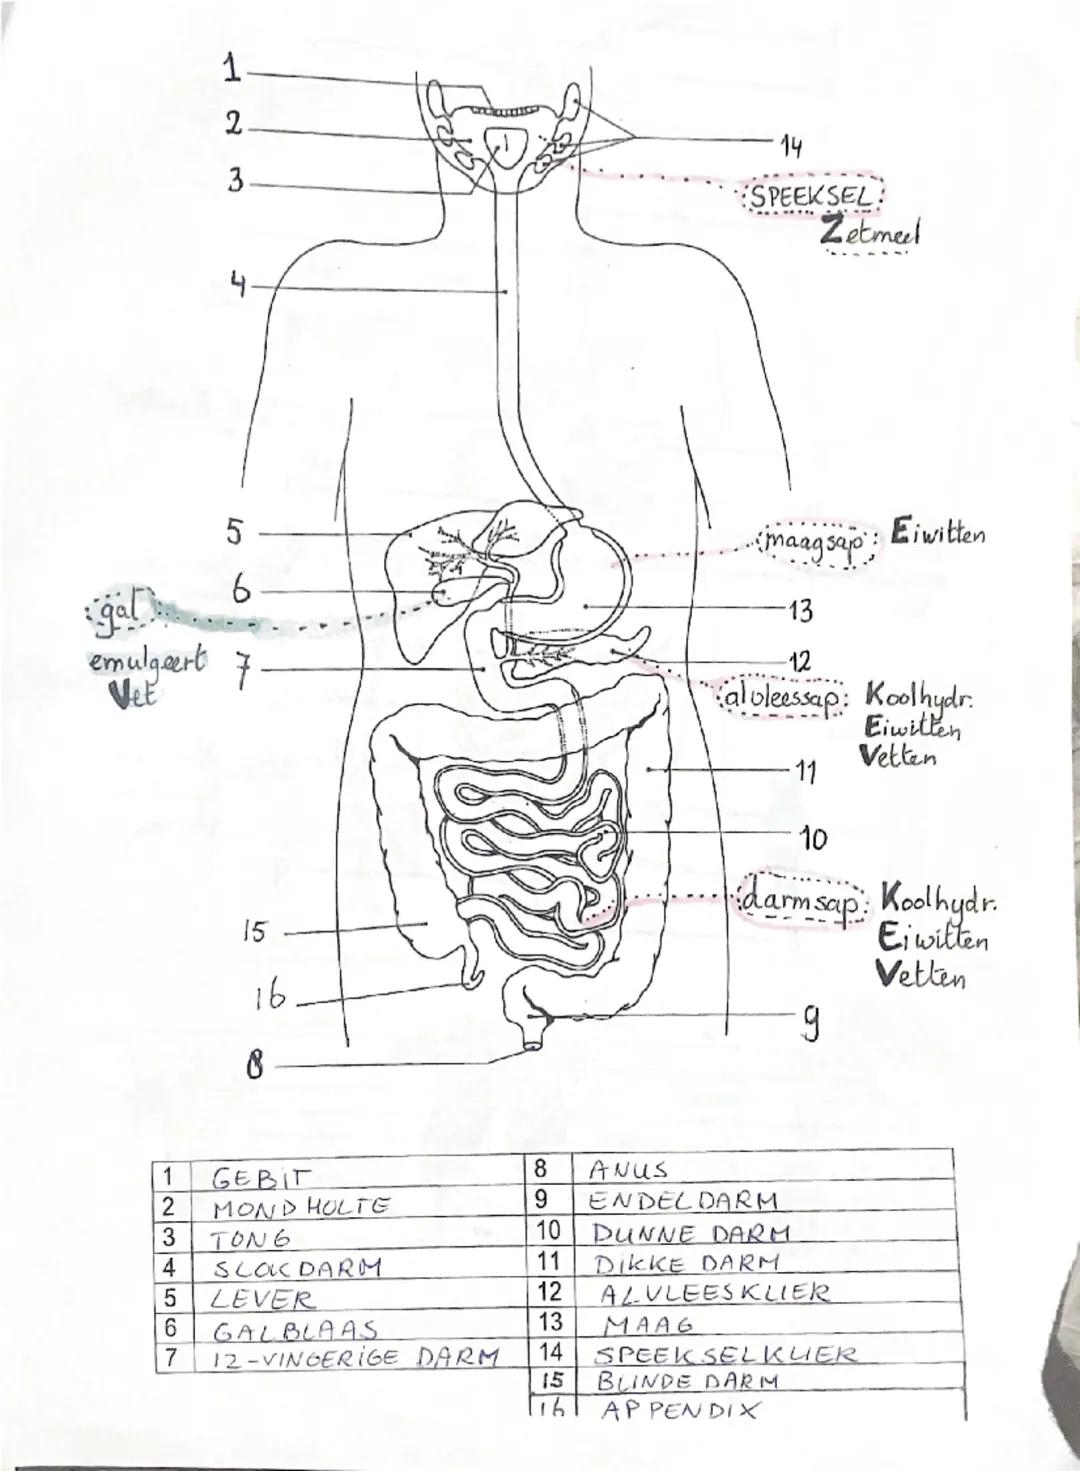 1
2
14
3
SPEEKSEL:
Zetmeel
4
5
maagsap: Eiwitten
6
gal:
13
emulgeert
Vet
7
12
alvleessap: Koolhydr.
Eiwitten
Vetten
11
10
darmsap: Koolhydr.
Eiwitten
Vetten
15
16
9
8
1 GEBIT
2 MONDHOLTE
3 TONG
4 SLOKDARM
5 LEVER
6 GALBLAAS
7 12-VINGERIGE DARM
8 ANUS
9 ENDELDARM
10 DUNNE DARM
11 DIKKE DARM
12 ALVLEESKLIER
13 MAAG
14 SPEEKSELKLIER
15 BLINDE DARM
16 APPENDIX